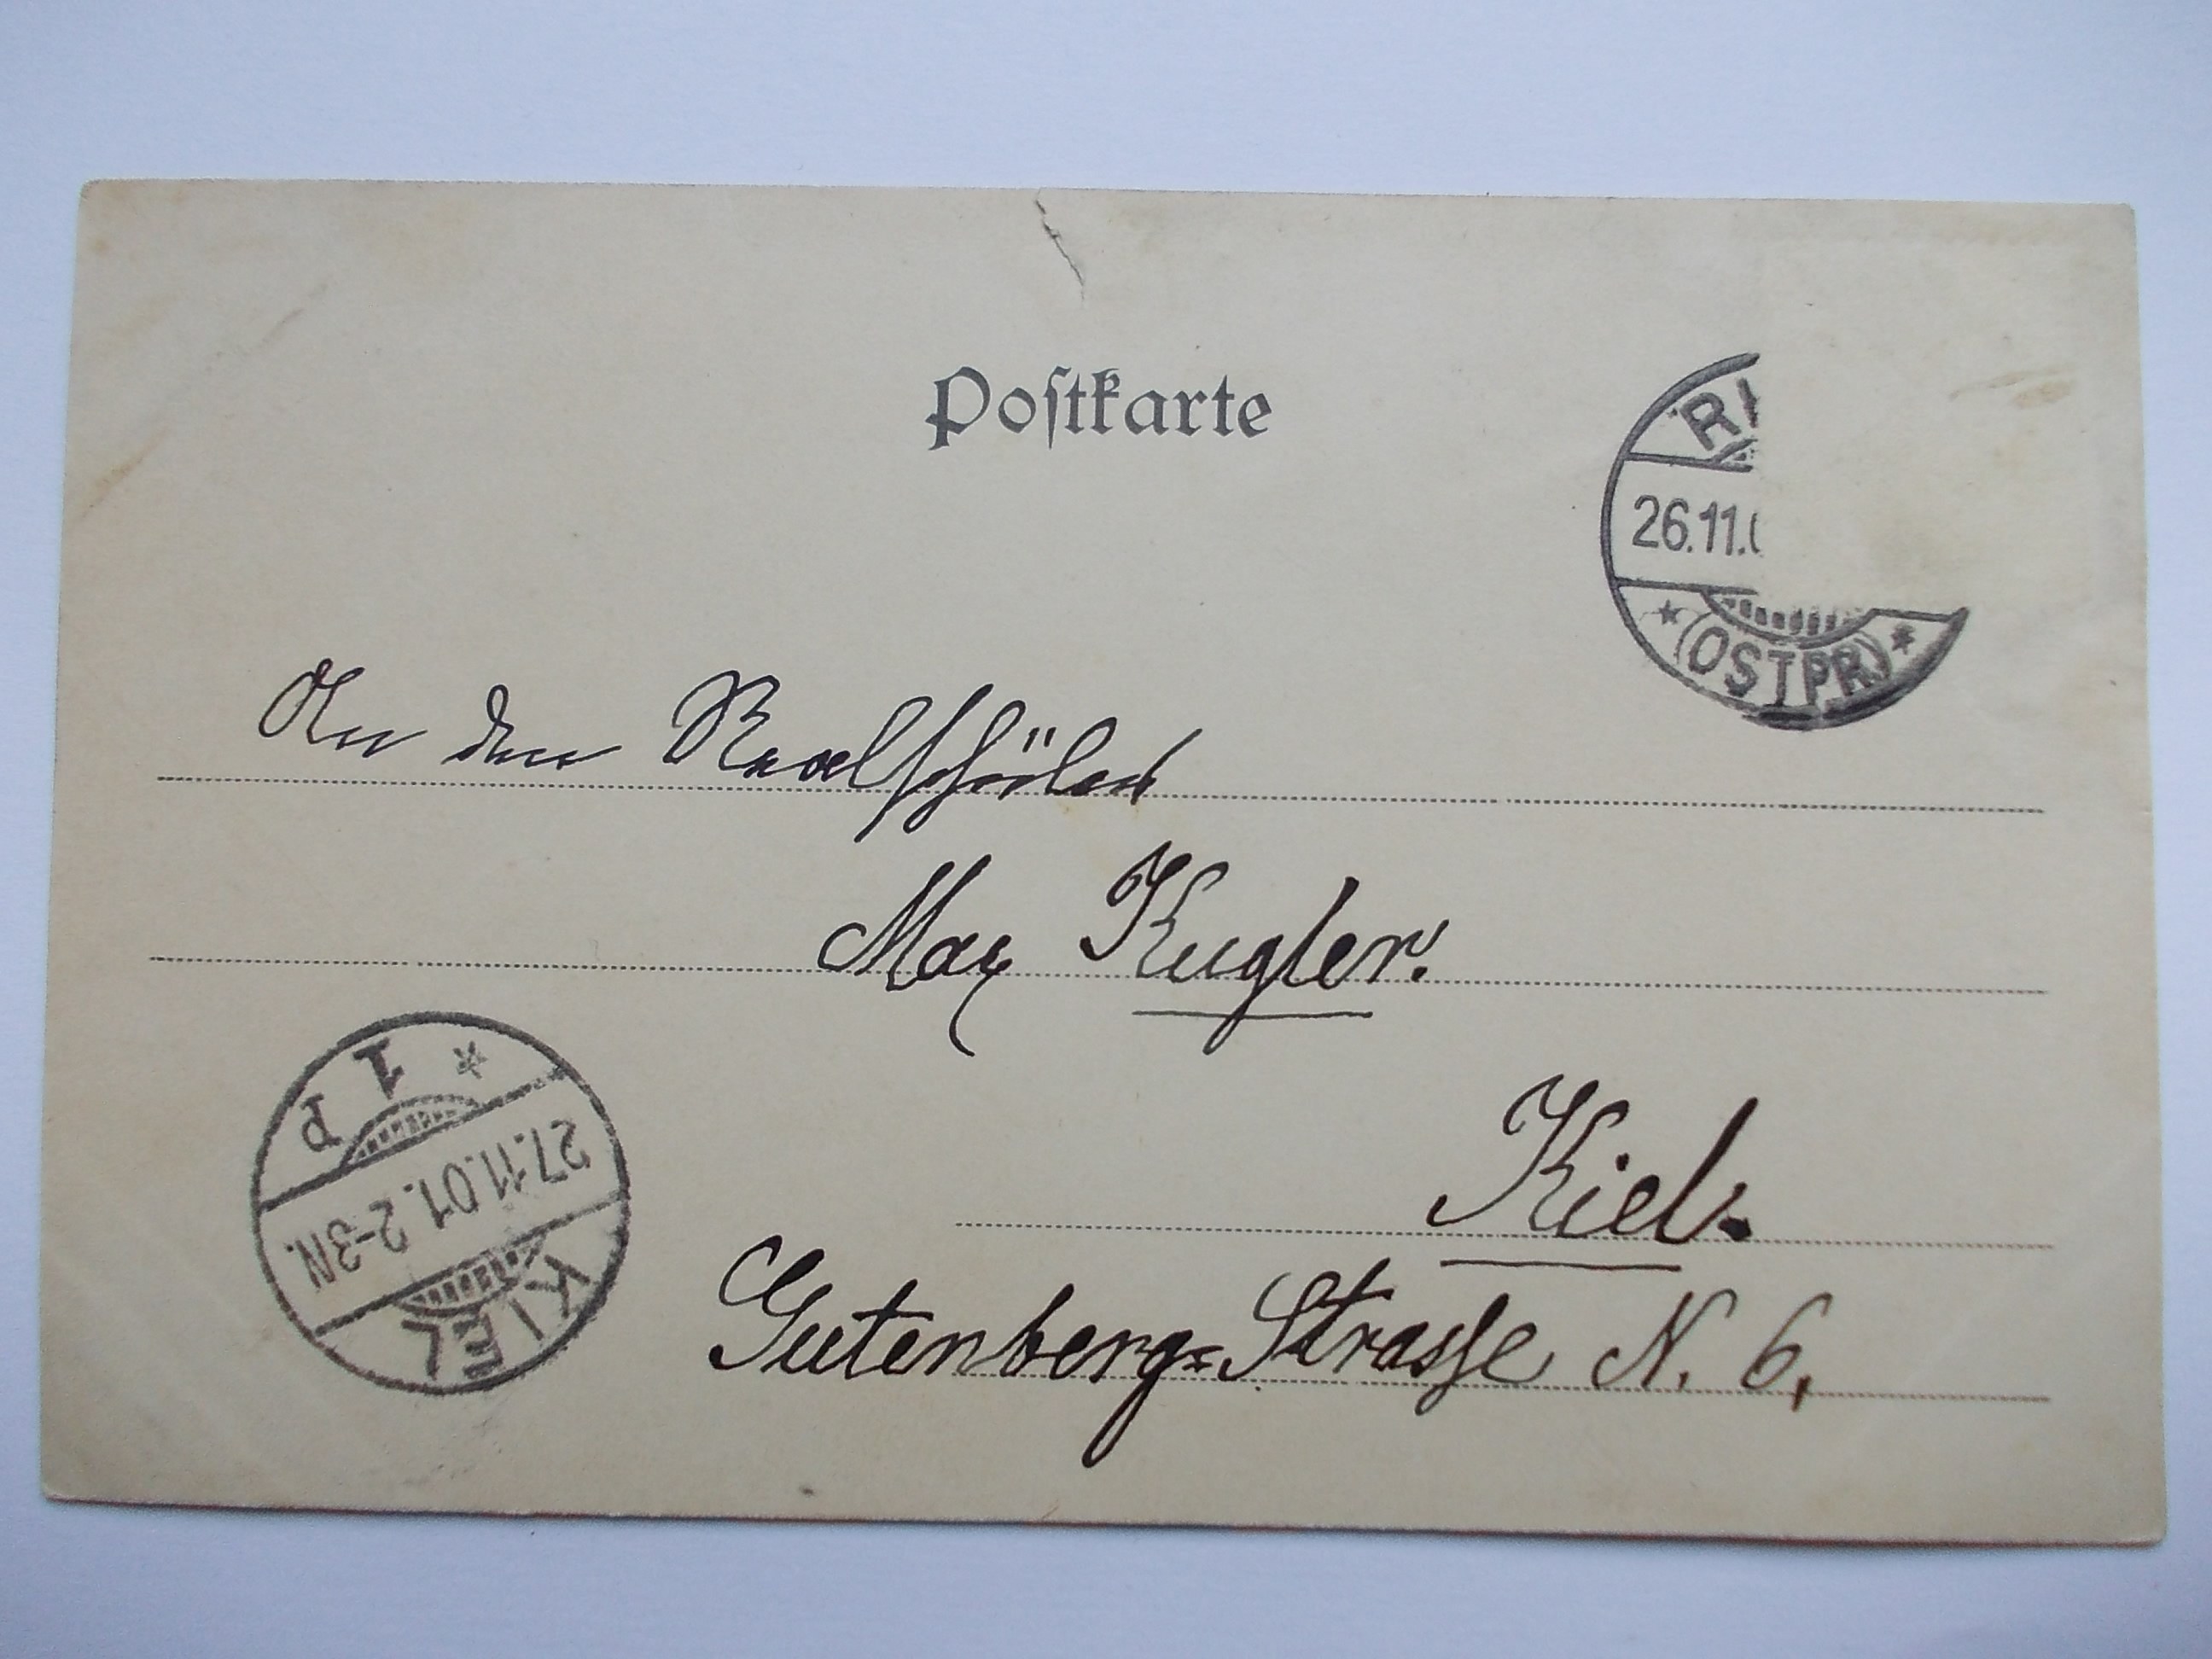 Postkarte
RI
26.11.0
* (OSTPR) *
An den Realschüler
Max Kugler.
Kiel.
Gutenberg=Strasse N. 6,
KIEL
27.11.01. 2-3N.
* 1 P